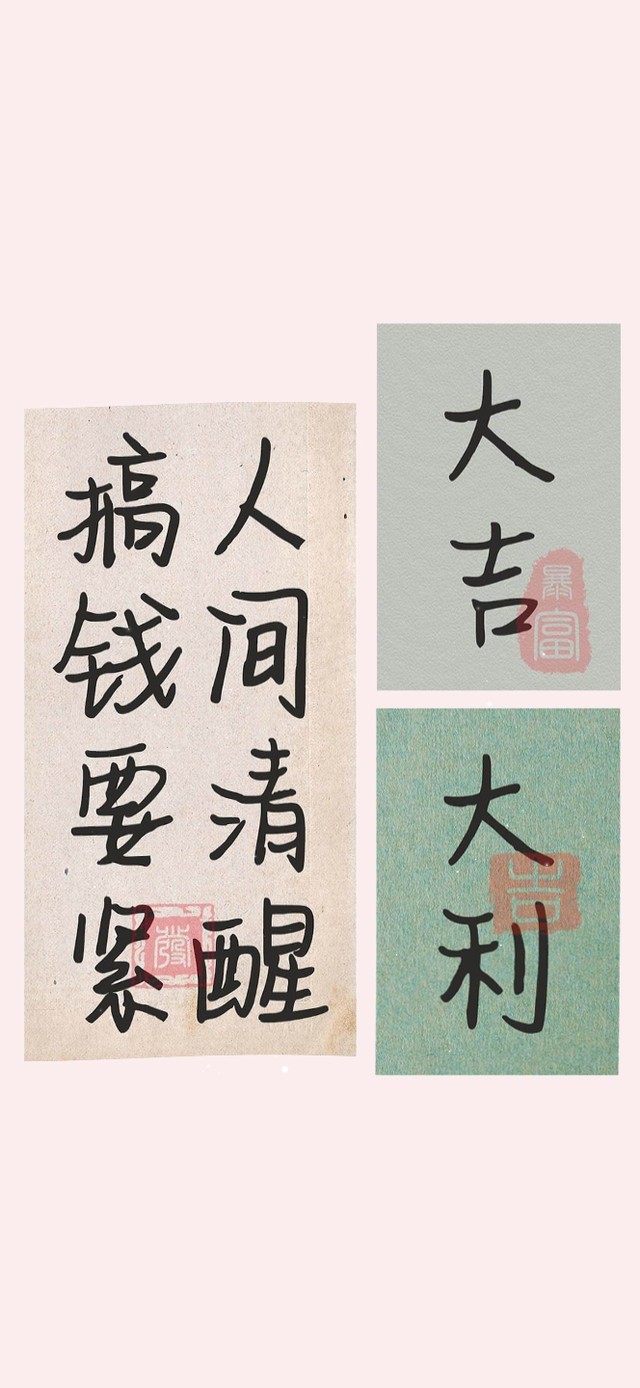 大吉
暴富
大利
吉
人间清醒
搞钱要紧
發